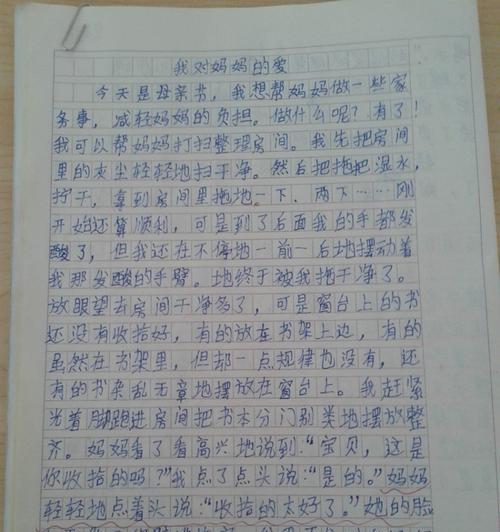 我对妈妈的爱
今天是母亲节，我想帮妈妈做一些家
务事，减轻妈妈的负担。做什么呢？有了！
我可以帮妈妈打扫整理房间。我先把房间
里的灰尘轻轻地扫干净。然后把拖把湿水，
拧干，拿到房间里拖地一下、两下……刚
开始还算顺利，可是到了后面我的手都发
酸了，但我还在不停地一前一后地摆动着
我那发酸的手臂。地终于被我拖干净了。
放眼望去房间干净多了，可是窗台上的书
还没有收拾好，有的放在书架上边，有的
虽然在书架里，但却一点规律也没有，还
有的书杂乱无章地摆放在窗台上。我赶紧
光着脚跑进房间把书本分门别类地摆放整
齐。妈妈看了看高兴地说到：“宝贝，这是
你收拾的吗？”我点了点头说：“是的。”妈妈
轻轻地点着头说：“收拾的太好了。”她的脸